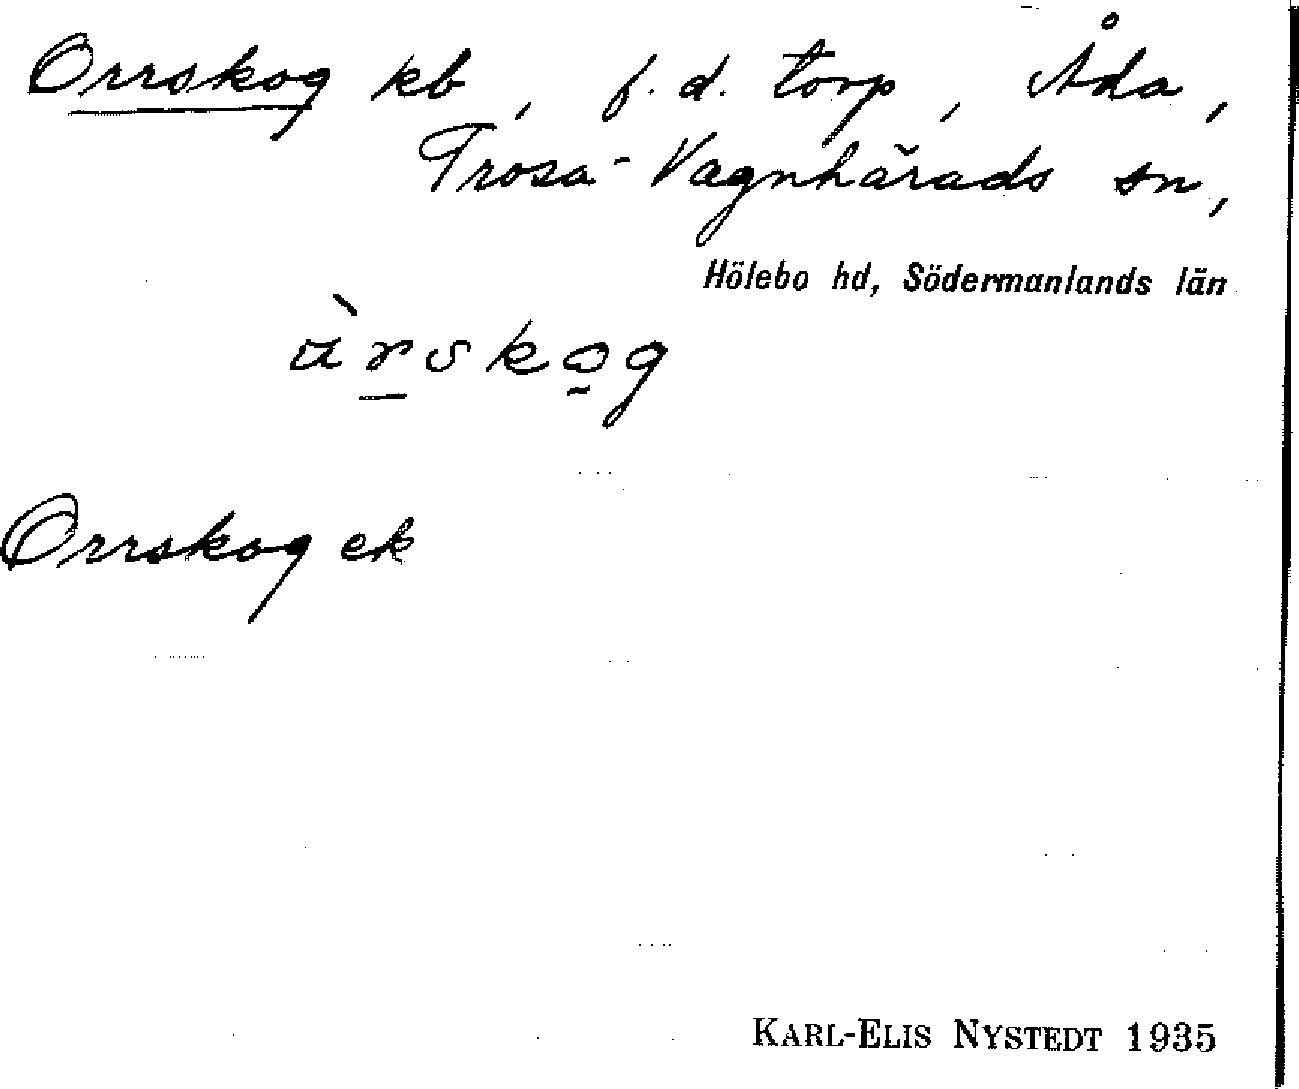 Orrskog kb, f.d. torp, Åda,
Trosa-Vagnhärads sn,
Hölebo hd, Södermanlands län
Orrskog ek
KARL-ELIS NYSTEDT 1935